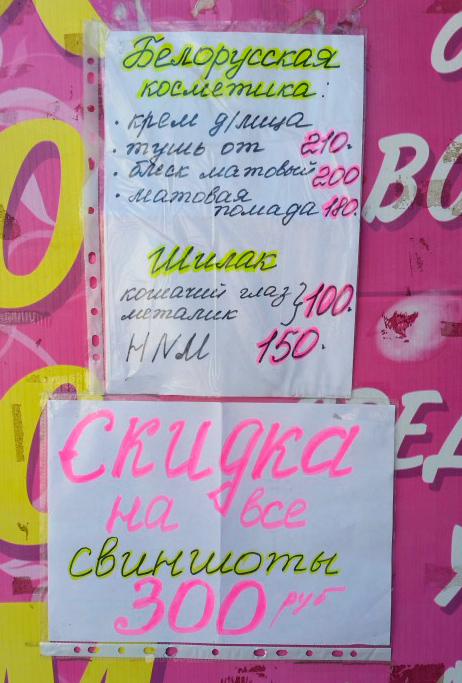 Белорусская
косметика:
• крем д/лица
• тушь от 210.
• блеск матовый 200
• матовая
помада 180.
Шилак
кошачий глаз } 100.
металик
HNM 150.
Скидка
на все
свиншоты
300 руб
ВО
ЕД